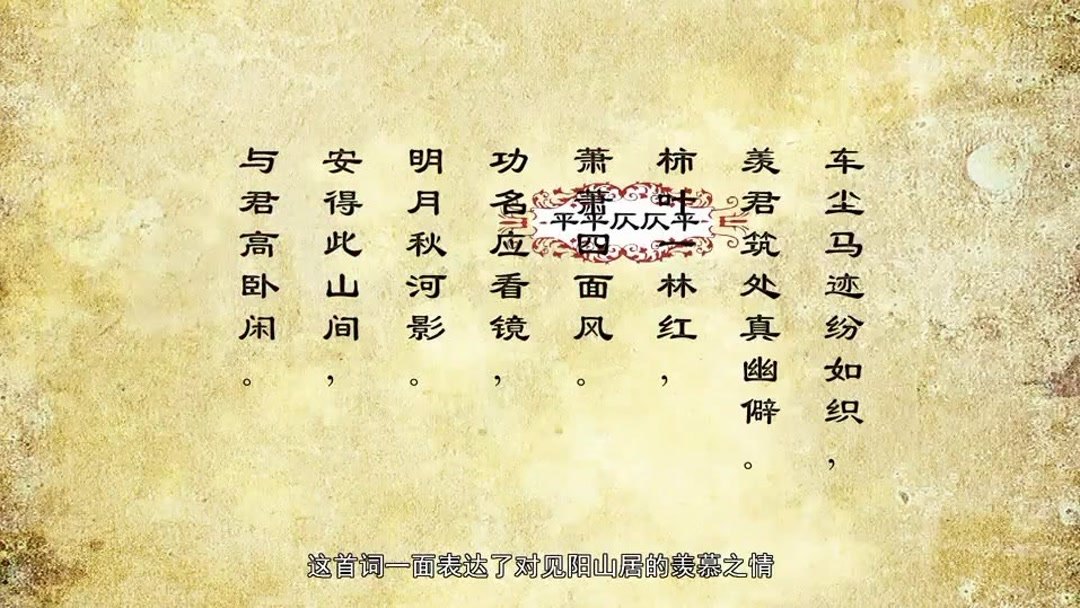 车尘马迹纷如织，
羡君筑处真幽僻。
柿叶一林红，
萧萧四面风。
功名应看镜，
明月秋河影。
安得此山间，
与君高卧闲。
平平仄仄平
这首词一面表达了对见阳山居的羡慕之情